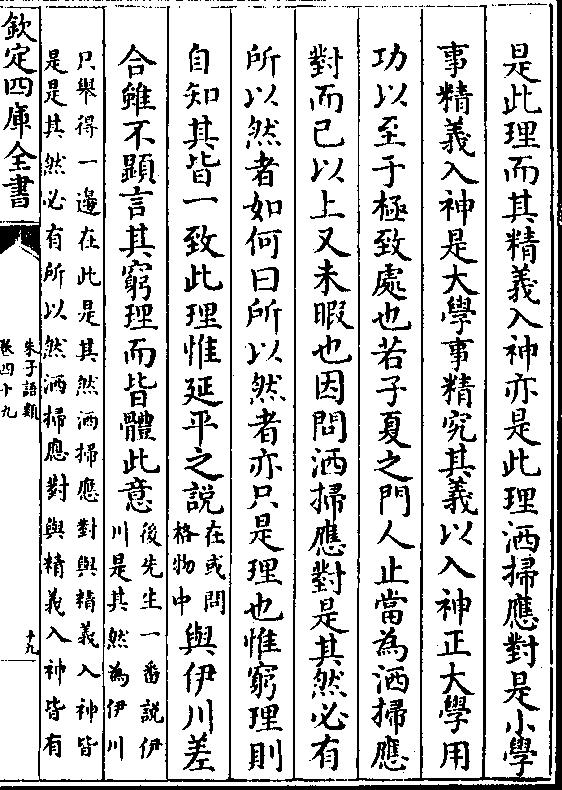 是此理而其精義入神亦是此理洒掃應對是小學
事精義入神是大學事精究其義以入神正大學用
功以至于極致處也若子夏之門人止當為洒掃應
對而已以上又未暇也因問洒掃應對是其然必有
所以然者如何曰所以然者亦只是理也惟窮理則
自知其皆一致此理惟延平之說在或問格物中與伊川差
合雖不顯言其窮理而皆體此意後先生一番說伊
川是其然為伊川
只舉得一邊在此是其然洒掃應對與精義入神皆
是是其然必有所以然洒掃應對與精義入神皆有
欽定四庫全書
朱子語類
卷四十九
十九